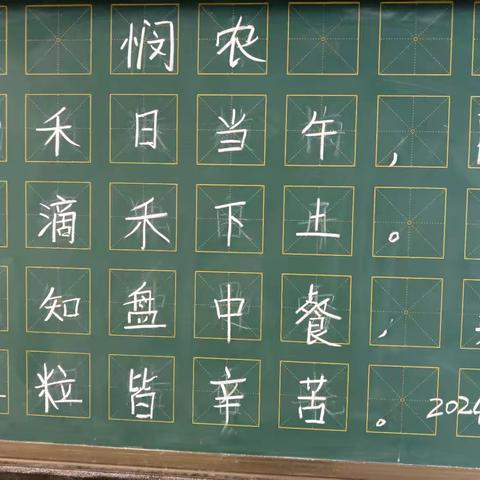 悯农
禾日当午，
滴禾下土。
知盘中餐，
粒皆辛苦。 2024